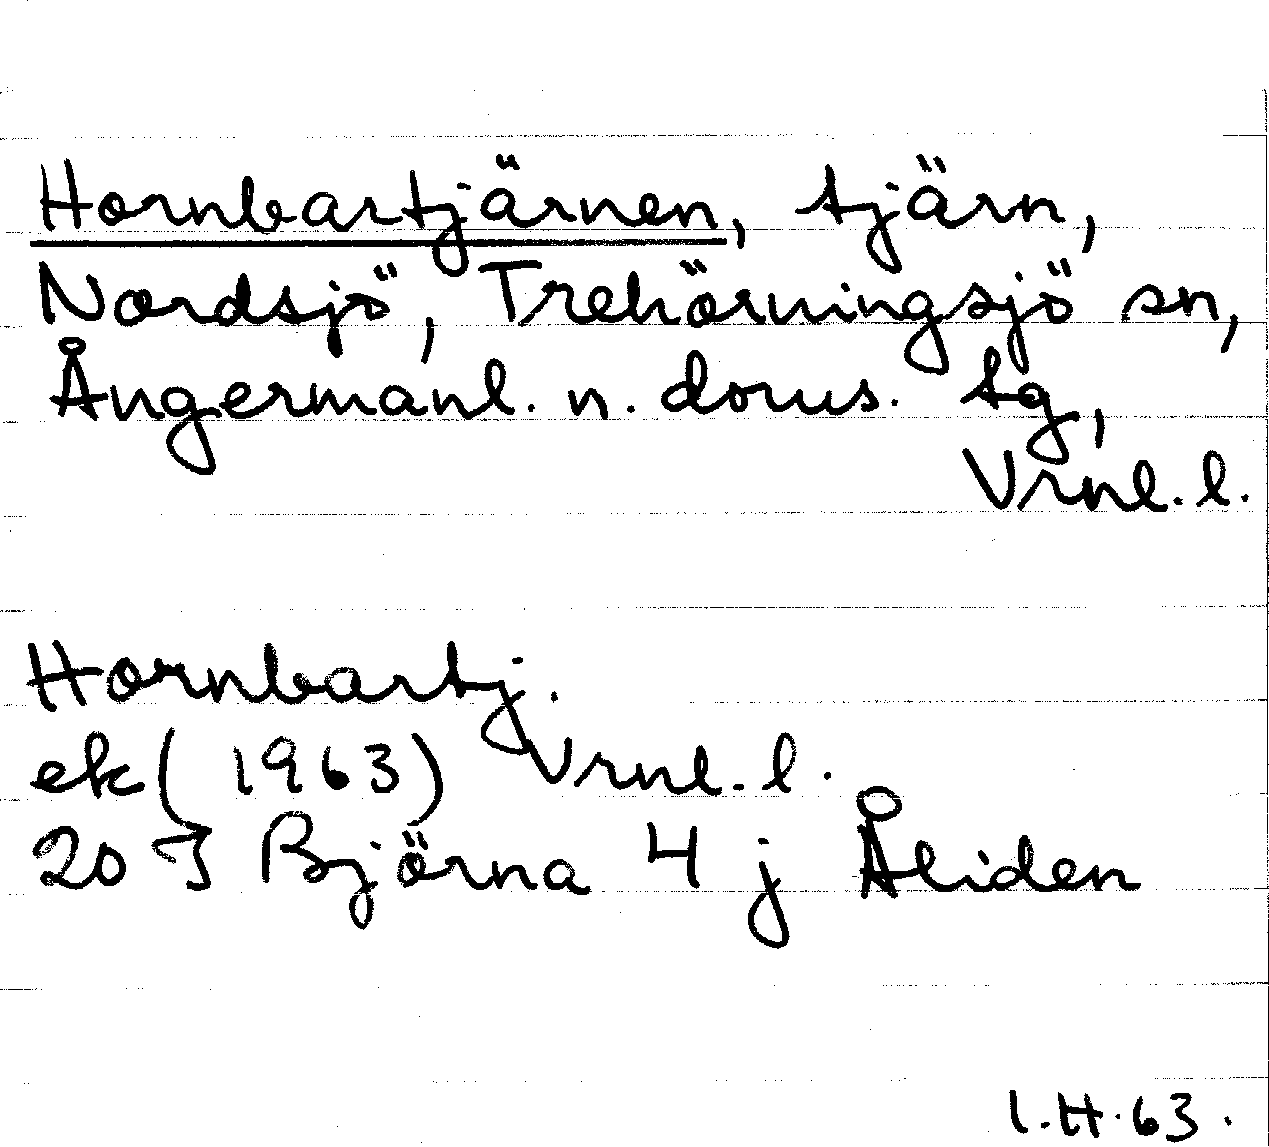 Hornbartjärnen, tjärn,
Nordsjö, Trehörningsjö sn,
Ångermanl. n. doms. tg,
Vrnl. l.
Hornbartj.
ek (1963) Vrnl. l.
20 J Björna 4 j Åliden
I.H.63.